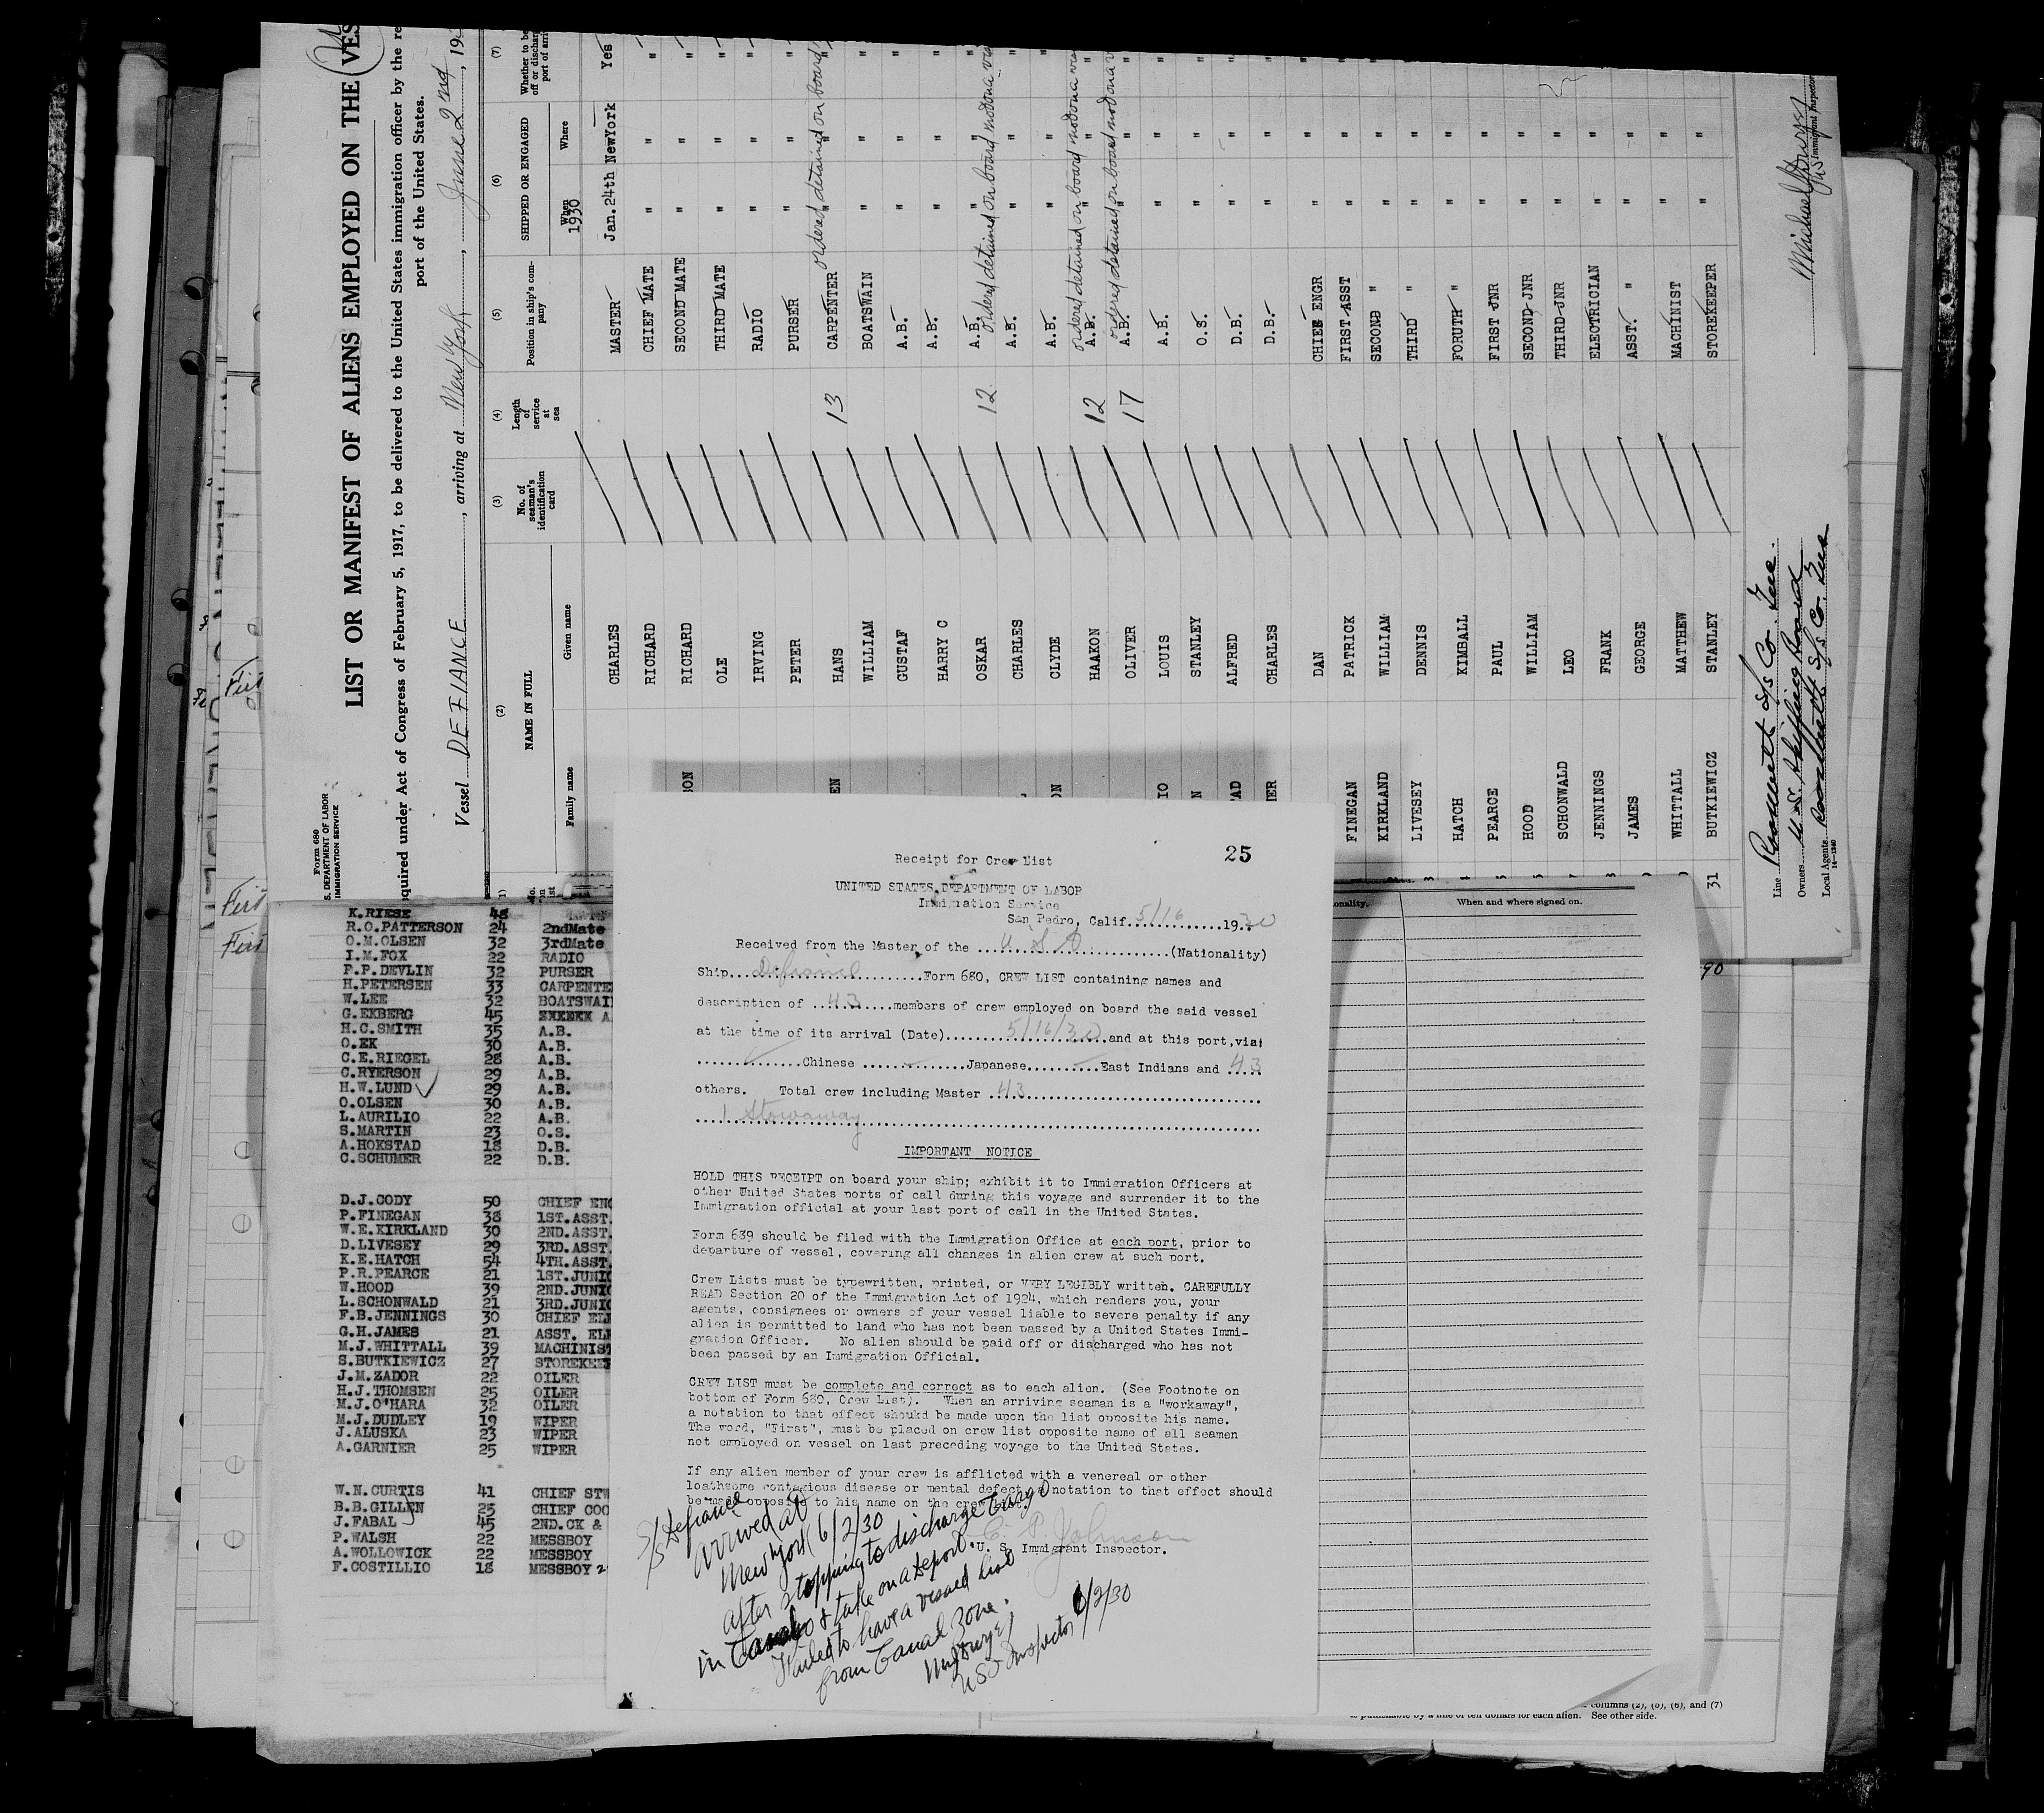 Form 680
S. DEPARTMENT OF LABOR
IMMIGRATION SERVICE
LIST OR MANIFEST OF ALIENS EMPLOYED ON THE VES
quired under Act of Congress of February 5, 1917, to be delivered to the United States immigration officer by the re
port of the United States.
Vessel DEFIANCE, arriving at New York, June 2nd, 19
(2) (3) (4) (5) (6) (7)
NAME IN FULL
Family name Given name
No. of seaman's identification card
Length of service at sea
Position in ship's company
SHIPPED OR ENGAGED
When Where
1930
Whether to be
off or discharg
port of arri
CHARLES MASTER Jan.24th NewYork Yes
RICHARD CHIEF MATE " " "
RICHARD SECOND MATE " " "
OLE THIRD MATE " " "
IRVING RADIO " " "
PETER PURSER " " "
HANS 13 CARPENTER ordered detained on board
WILLIAM BOATSWAIN " " "
GUSTAF A.B. " " "
HARRY C A.B. " " "
OSKAR 12 A.B. ordered detained on board no dona visa
CHARLES A.B. " " "
CLYDE A.B. " " "
HAAKON 12 A.B. ordered detained on board
OLIVER 17 A.B. ordered detained on board
LOUIS A.B. " " "
STANLEY O.S. " " "
ALFRED D.B. " " "
CHARLES D.B. " " "
DAN CHIEF ENGR " " "
FINEGAN PATRICK FIRST ASST " " "
KIRKLAND WILLIAM SECOND " " " "
LIVESEY DENNIS THIRD " " " "
HATCH KIMBALL FORUTH " " " "
PEARCE PAUL FIRST JNR " " "
HOOD WILLIAM SECOND JNR " " "
SCHONWALD LEO THIRD JNR " " "
JENNINGS FRANK ELECTRICIAN " " "
JAMES GEORGE ASST. " " " "
WHITTALL MATTHEW MACHINIST " " "
31 BUTKIEWICZ STANLEY STOREKEEPER " " "
Line Roosevelt S/s Co. Inc.
Owners U.S. Shipping Board
Local Agents Roosevelt S/s Co. Inc
Immigrant Inspector
K.RIESE 48
R.O.PATTERSON 24 2ndMate
O.M.OLSEN 32 3rdMate
I.M.FOX 22 RADIO
P.P.DEVLIN 32 PURSER
H.PETERSEN 33 CARPENTE
W.LEE 32 BOATSWAI
G.EKBERG 45 A
H.C.SMITH 35 A.B.
O.EK 30 A.B.
C.E.RIEGEL 28 A.B.
C.RYERSON 29 A.B.
H.W.LUND 29 A.B.
O.OLSEN 30 A.B.
L.AURILIO 22 A.B.
S.MARTIN 23 O.S.
A.HOKSTAD 18 D.B.
C.SCHUMER 22 D.B.
D.J.CODY 50 CHIEF ENG
P.FINEGAN 38 1ST.ASST.
W.E.KIRKLAND 30 2ND.ASST.
D.LIVESEY 29 3RD.ASST.
K.E.HATCH 54 4TH.ASST.
P.R.PEARCE 21 1ST.JUNIO
W.HOOD 39 2ND.JUNIO
L.SCHONWALD 21 3RD.JUNIO
F.B.JENNINGS 30 CHIEF ELE
G.H.JAMES 21 ASST. ELE
M.J.WHITTALL 39 MACHINIST
S.BUTKIEWICZ 27 STOREKEE
J.M.ZADOR 22 OILER
H.J.THOMSEN 25 OILER
M.J.O'HARA 32 OILER
M.J.DUDLEY 19 WIPER
J.ALUSKA 23 WIPER
A.GARNIER 25 WIPER
W.N.CURTIS 41 CHIEF STW
B.B.GILLEN 25 CHIEF COO
J.FABAL 45 2ND.CK &
P.WALSH 22 MESSBOY
A.WOLLOWICK 22 MESSBOY
F.COSTILLIO 18 MESSBOY
25
Receipt for Crew List
UNITED STATES DEPARTMENT OF LABOR
Immigration Service
San Pedro, Calif. 5/16 1930
Received from the Master of the U S A (Nationality)
Ship Defiance Form 680, CREW LIST containing names and
description of 43 members of crew employed on board the said vessel
at the time of its arrival (Date) 5/16/30 and at this port, via:
Chinese Japanese East Indians and 43
others. Total crew including Master 43
1 Stowaway
IMPORTANT NOTICE
HOLD THIS RECEIPT on board your ship; exhibit it to Immigration Officers at
other United States ports of call during this voyage and surrender it to the
Immigration official at your last port of call in the United States.
Form 689 should be filed with the Immigration Office at each port, prior to
departure of vessel, covering all changes in alien crew at such port.
Crew Lists must be typewritten, printed, or VERY LEGIBLY written. CAREFULLY
READ Section 20 of the Immigration Act of 1924, which renders you, your
agents, consignees or owners of your vessel liable to severe penalty if any
alien is permitted to land who has not been passed by a United States Immi-
gration Officer. No alien should be paid off or discharged who has not
been passed by an Immigration Official.
CREW LIST must be complete and correct as to each alien. (See Footnote on
bottom of Form 680, Crew List). When an arriving seaman is a "workaway",
a notation to that effect should be made upon the list opposite his name.
The word, "First", must be placed on crew list opposite name of all seamen
not employed on vessel on last preceding voyage to the United States.
If any alien member of your crew is afflicted with a venereal or other
loathsome contagious disease or mental defect a notation to that effect should
be made opposite to his name on the crew list.
C. P. Johnson
U. S. Immigrant Inspector.
S/S Defiance
arrived at
New York 6/2/30
after stopping to discharge cargo
in & take on a deport.
Failed to have a visaed list
from Canal Zone.
US Inspector 6/2/30
onality. When and where signed on.
columns (2), (5), (6), and (7)
is punishable by a fine of ten dollars for each alien. See other side.